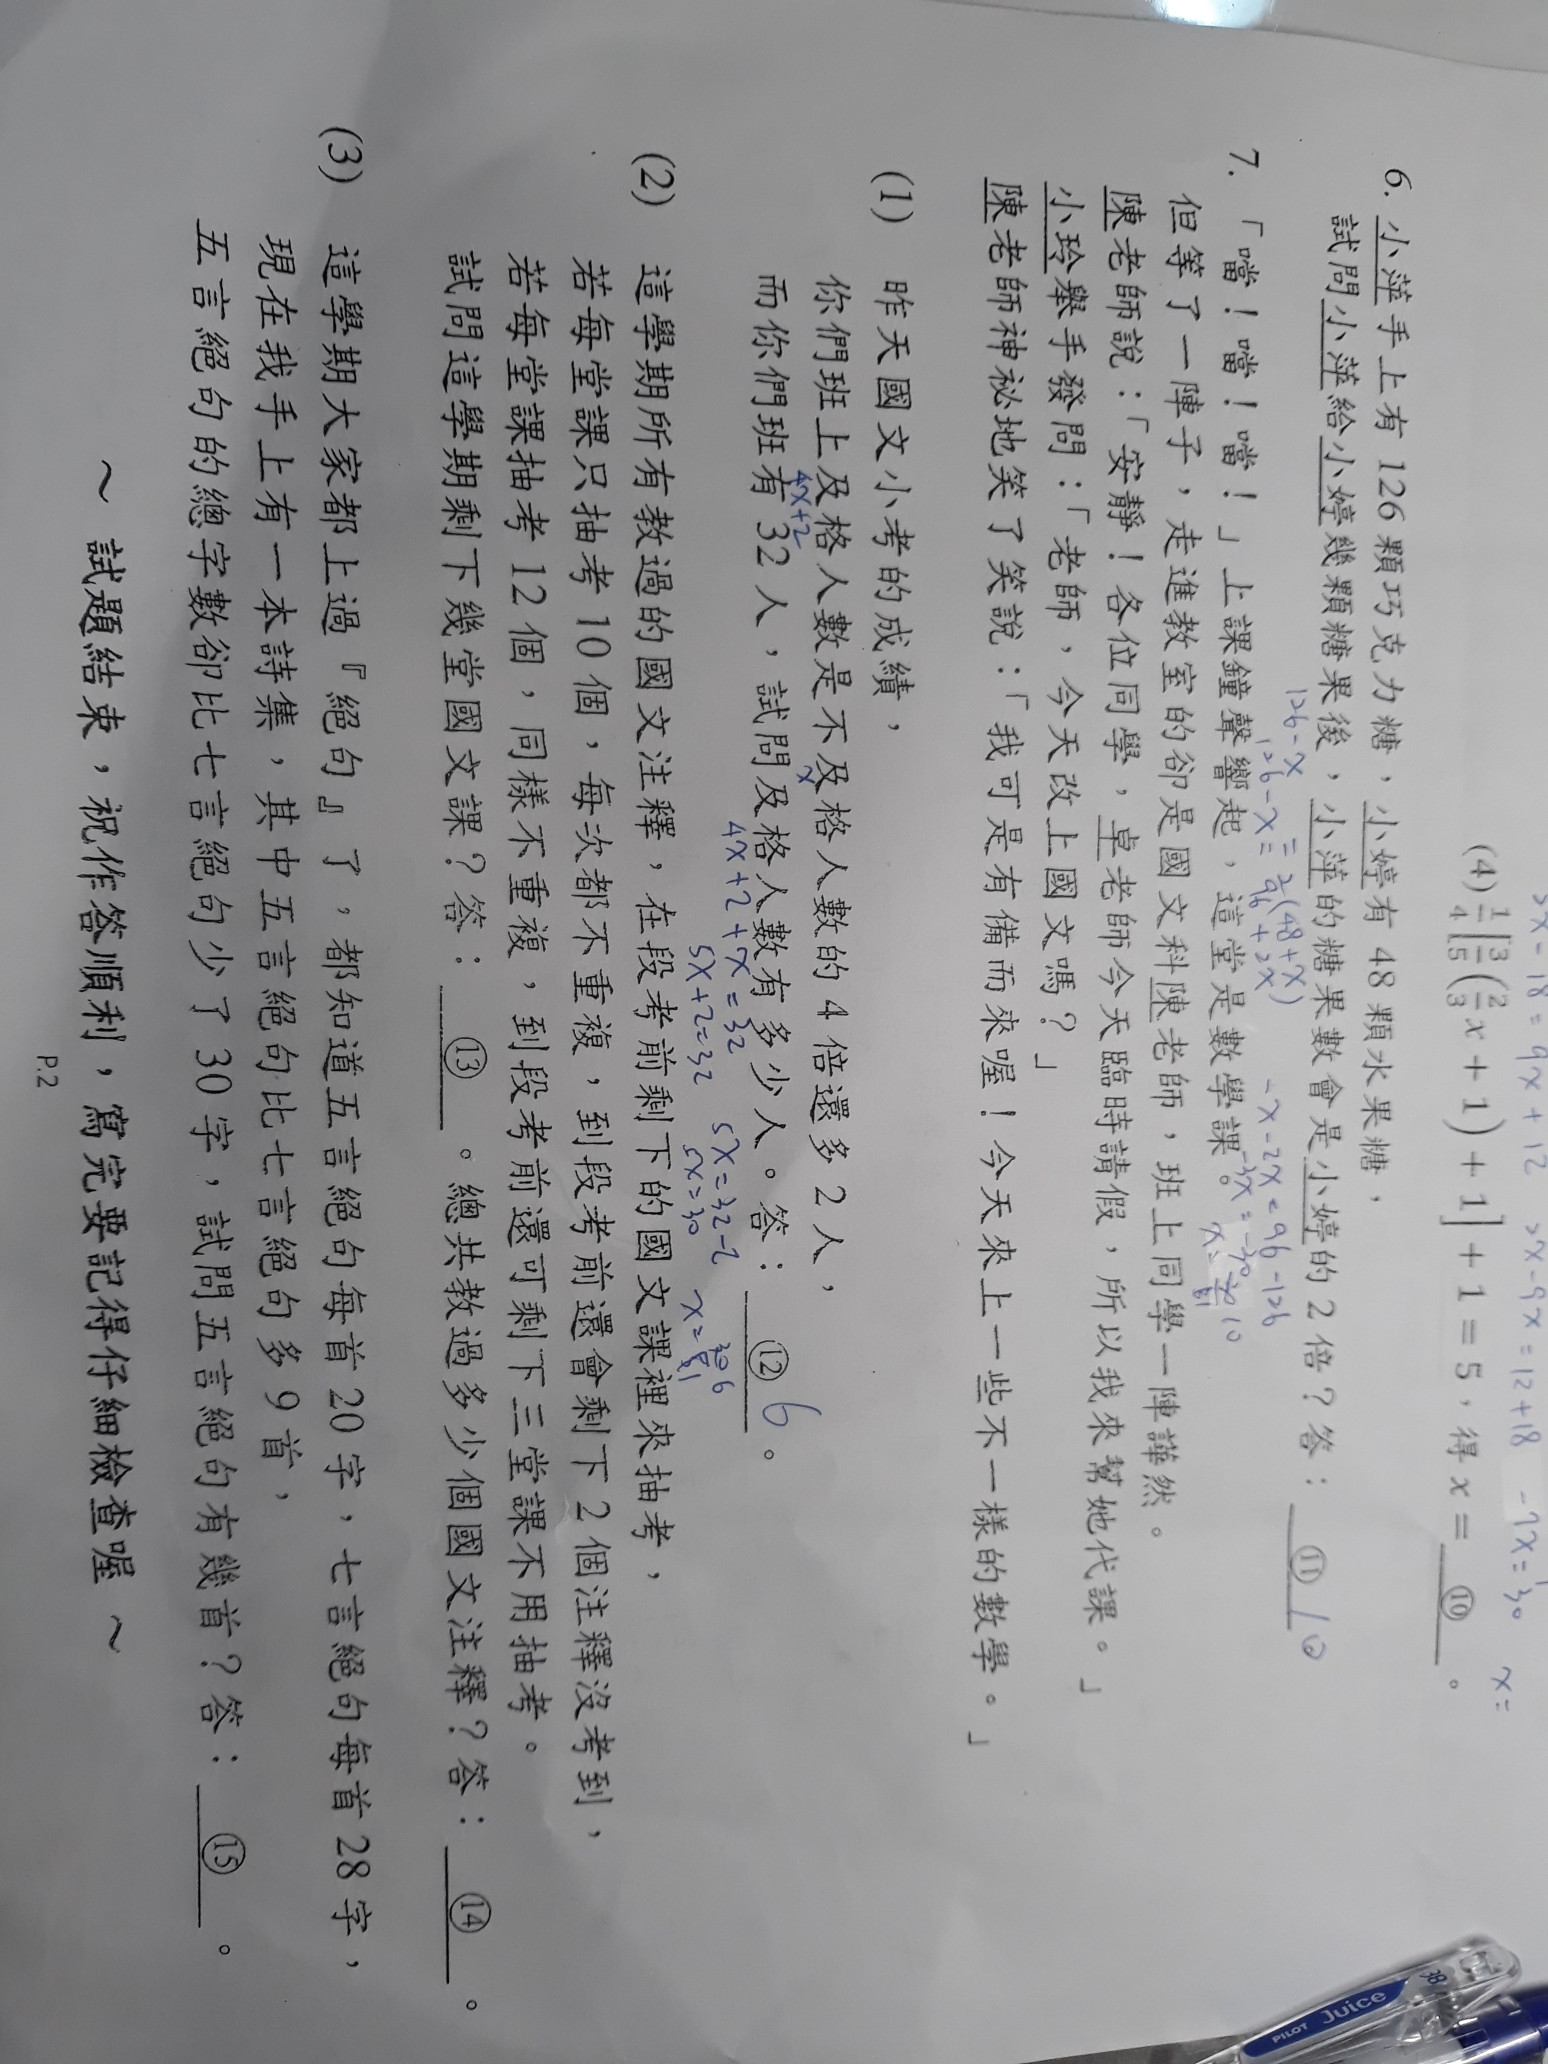 3x-18=9x+12 3x-9x=12+18 -7x=30 x=
(4) 1/4[3/5(2/3x+1)+1]+1=5，得 x= ⑩ 。
6. 小萍手上有 126 顆巧克力糖，小婷有 48 顆水果糖，
試問小萍給小婷幾顆糖果後，小萍的糖果數會是小婷的 2 倍？答： ⑪ 10
126-x =2(48+x)
126-x=96+2x
-x-2x=96-126
-3x=-30
x= 10
7. 「噹！噹！噹！」上課鐘聲響起，這堂是數學課。
但等了一陣子，走進教室的卻是國文科陳老師，班上同學一陣譁然。
陳老師說：「安靜！各位同學，卓老師今天臨時請假，所以我來幫她代課。」
小玲舉手發問：「老師，今天改上國文嗎？」
陳老師神祕地笑了笑說：「我可是有備而來喔！今天來上一些不一樣的數學。」
(1) 昨天國文小考的成績，
你們班上及格人數是不及格人數的 4 倍還多 2 人，
4x+2 x
而你們班有 32 人，試問及格人數有多少人。答： ⑫ 6 。
4x+2+x=32
5x+2=32
5x=32-2
5x=30
x= 6
(2) 這學期所有教過的國文注釋，在段考前剩下的國文課裡來抽考，
若每堂課只抽考 10 個，每次都不重複，到段考前還會剩下 2 個注釋沒考到，
若每堂課抽考 12 個，同樣不重複，到段考前還可剩下三堂課不用抽考。
試問這學期剩下幾堂國文課？答： ⑬ 。總共教過多少個國文注釋？答： ⑭ 。
(3) 這學期大家都上過『絕句』了，都知道五言絕句每首 20 字，七言絕句每首 28 字，
現在我手上有一本詩集，其中五言絕句比七言絕句多 9 首，
五言絕句的總字數卻比七言絕句少了 30 字，試問五言絕句有幾首？答： ⑮ 。
～ 試題結束，祝作答順利，寫完要記得仔細檢查喔 ～
P.2
PILOT Juice 38